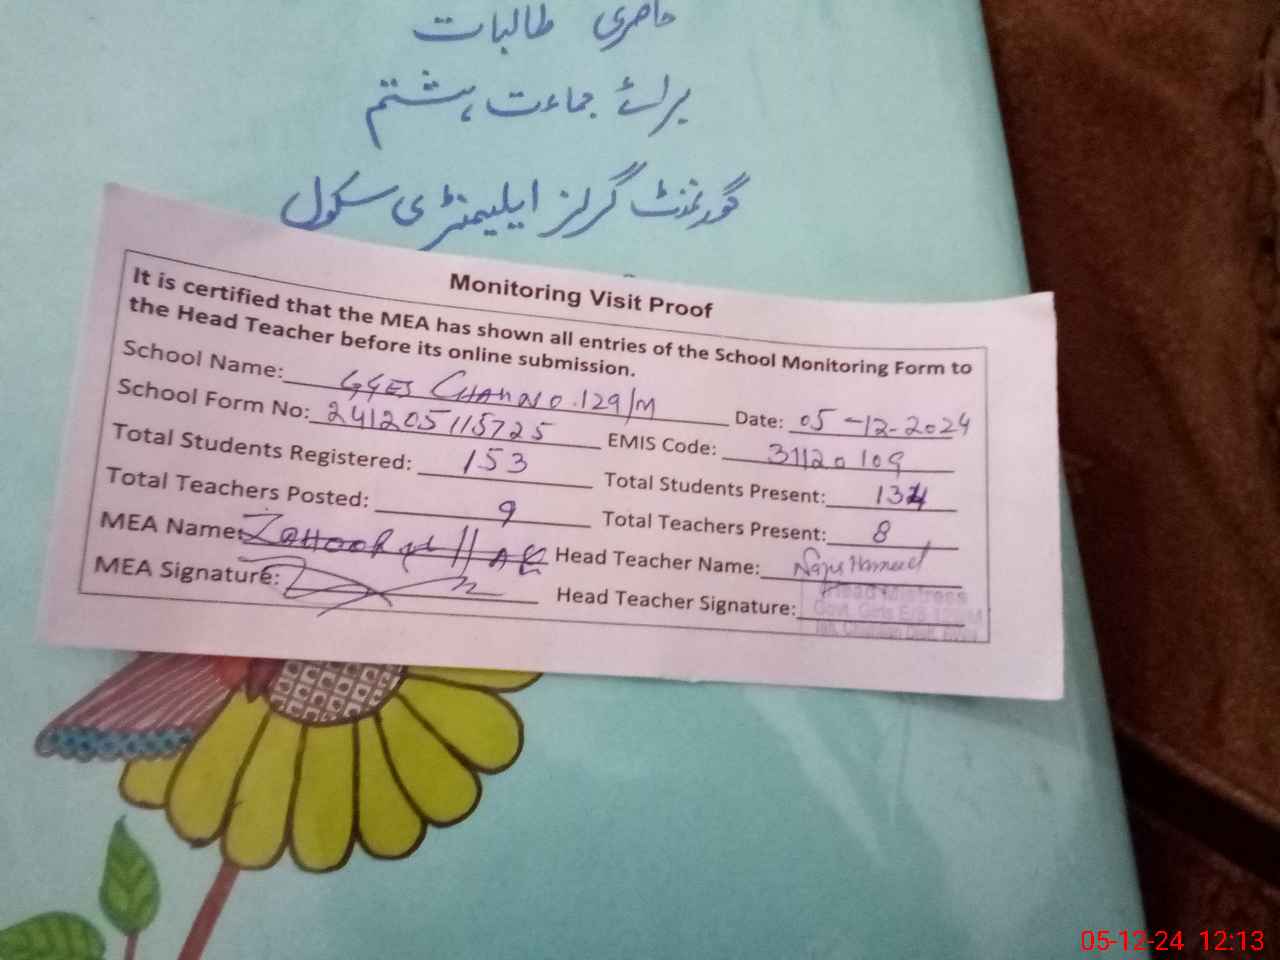 حاضری طالبات
برائے جماعت ہشتم
گورنمنٹ گرلز ایلیمنٹری سکول
Monitoring Visit Proof
It is certified that the MEA has shown all entries of the School Monitoring Form to
the Head Teacher before its online submission.
School Name: GGES CHAH NO.129/M Date: 05-12-2024
School Form No: 241205115725 EMIS Code: 31120109
Total Students Registered: 153 Total Students Present: 134
Total Teachers Posted: 9 Total Teachers Present: 8
MEA Name: ZAHOOR UL HAK Head Teacher Name:
MEA Signature: Head Teacher Signature:
Head Mistress
Govt. Girls E/S 129/M
05-12-24 12:13